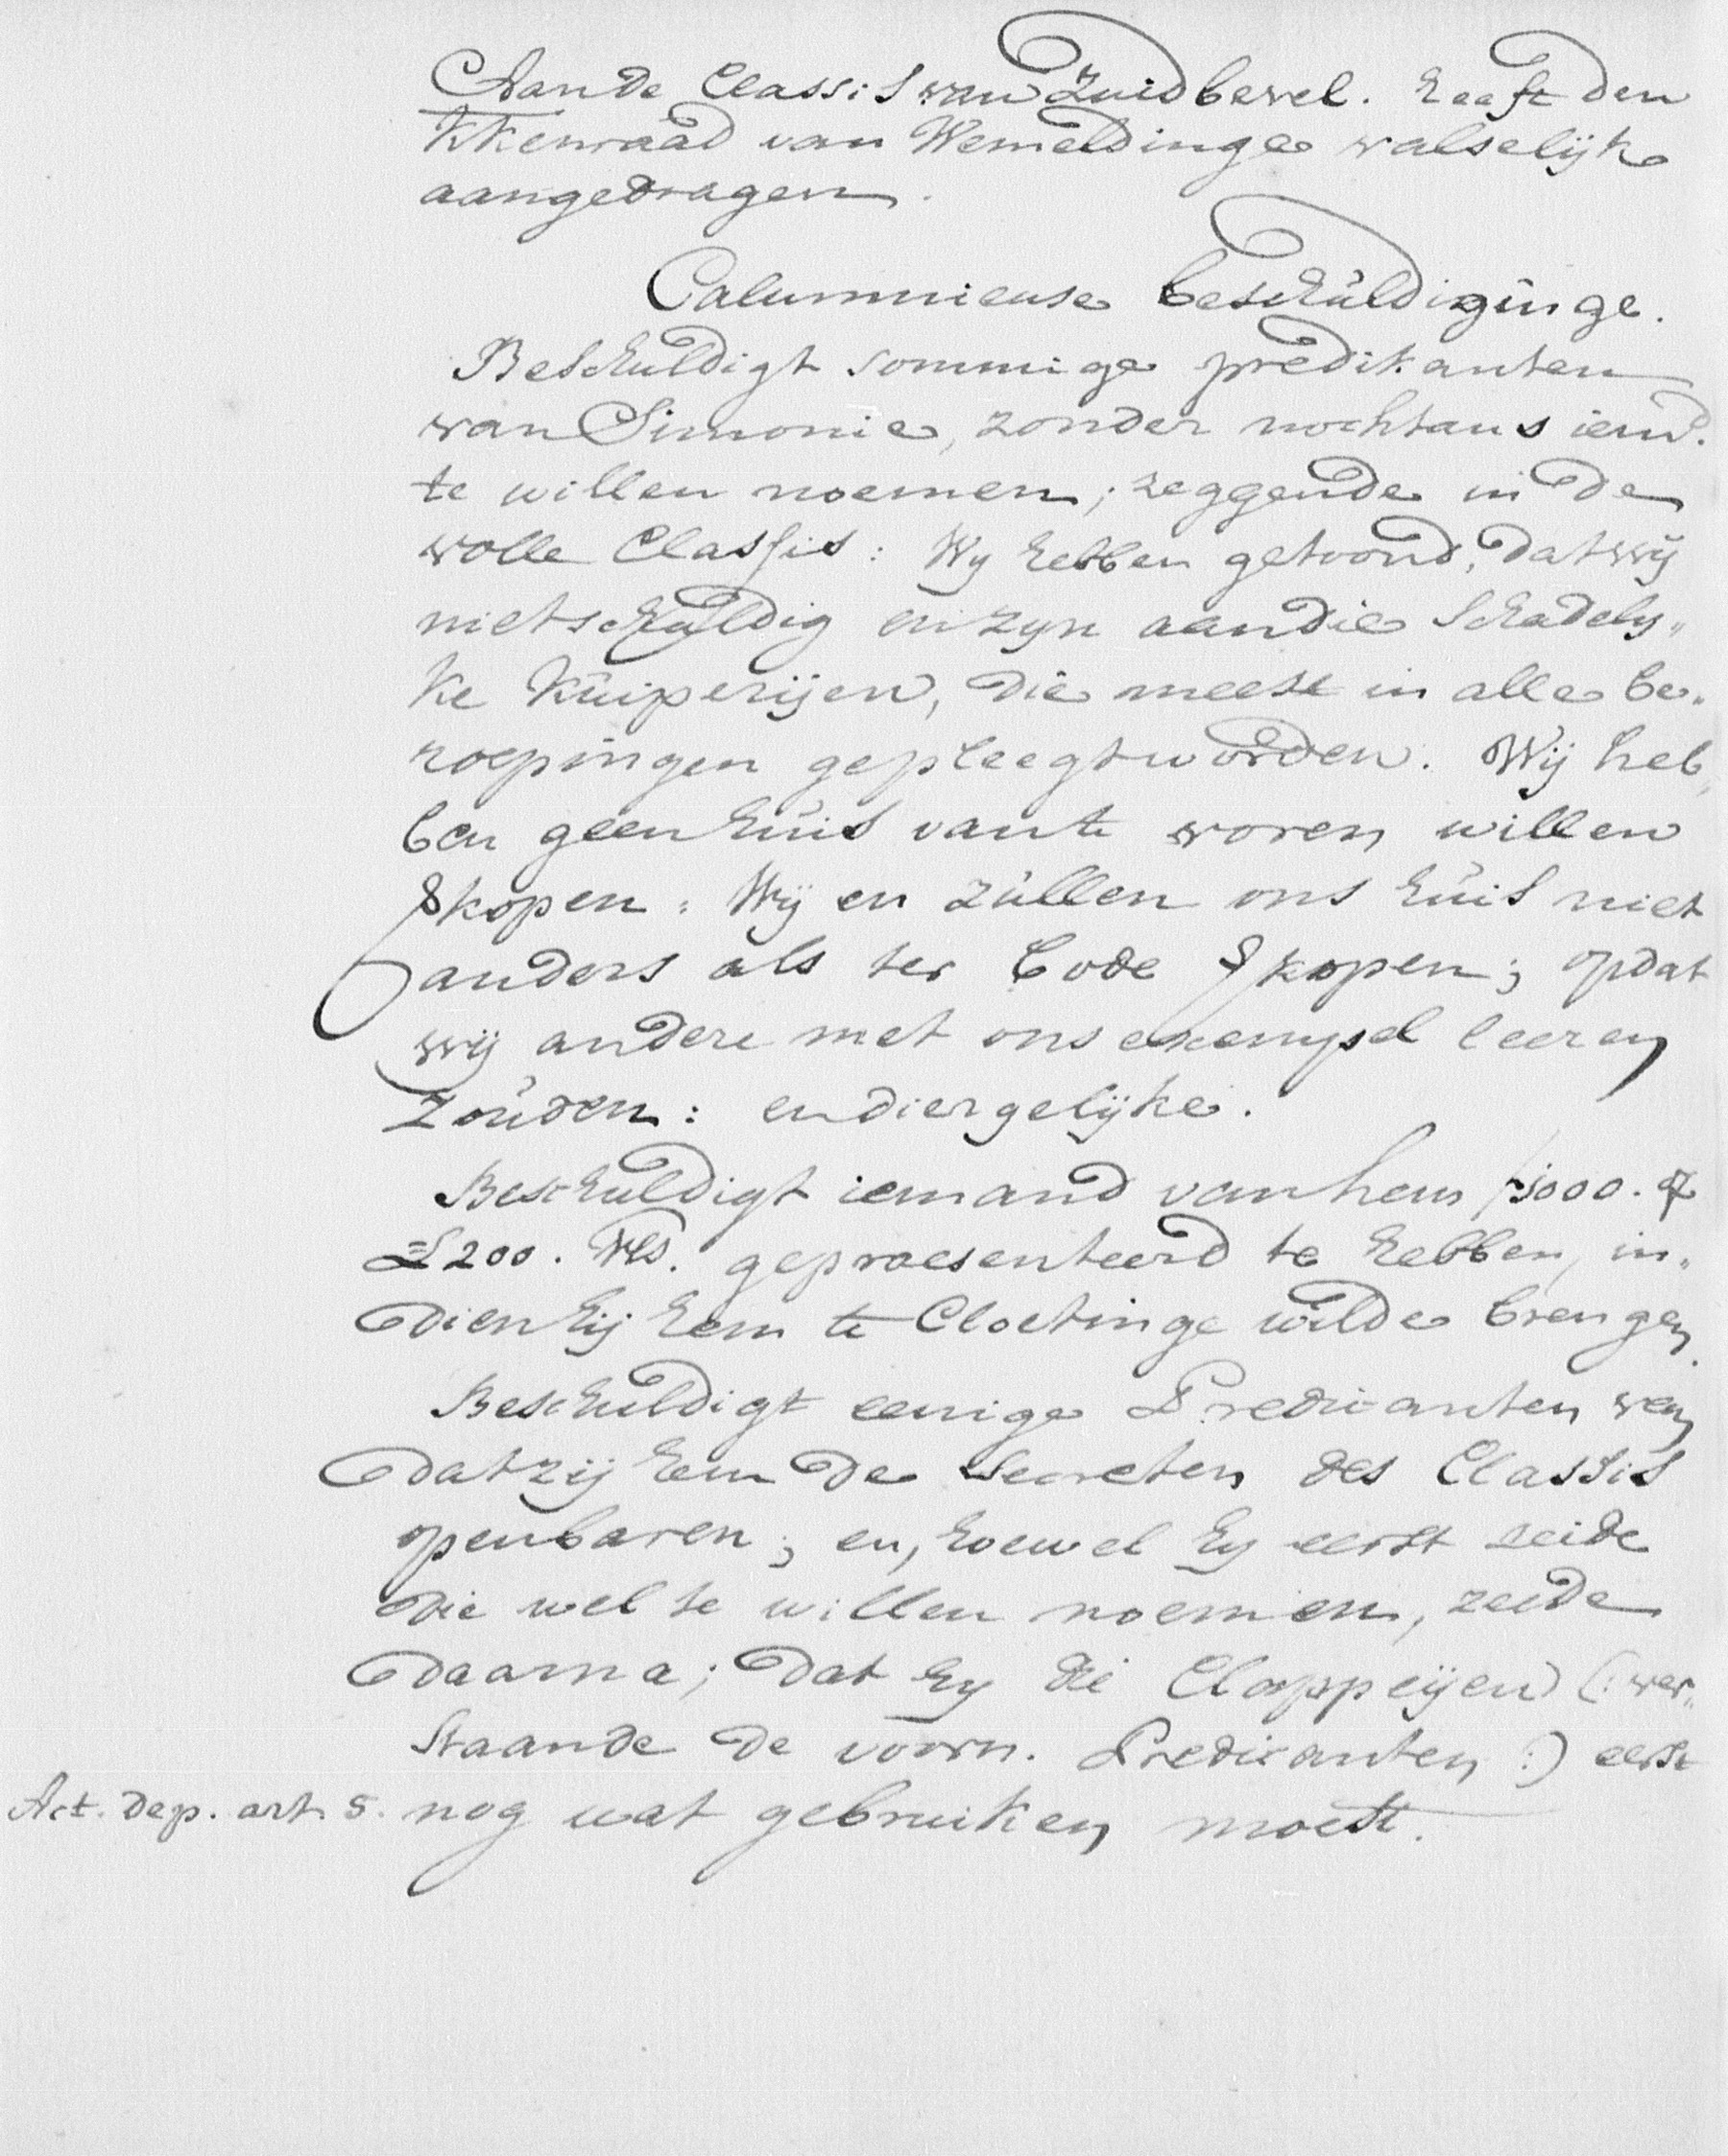 Aan de Classis van Zuidbevel. heeft den
Kkenraad van Wemeldinge valselijk
aangedragen.
Calumnieuse beschuldiginge.
Beschuldigt sommige predikanten
van Simonie, zonder nochtans iem̃d.
te willen noemen; zeggende in de
volle Classis: Wy hebben getoond, dat wij
niet schuldig en zyn aan die schadely„
ke kuiperijen, die meest in alle be„
roepingen gepleegt worden. Wij heb„
ben geen huis van te voren willen
kopen: Wij en zullen ons huis niet
anders als ter bode kopen; opdat
wij andere met ons exempel leeren
zouden: en diergelijke.
Beschuldigt iemand van hem
£200. Vls. gepraesenteerd te hebben, in„
dien hij hem te Cloetinge wilde brengen.
Beschuldigt eenige Predicanten van
dat zij hem de secreten des Classis
openbaren; en, hoewel hy eerst zeide
die wel te willen noemen, zeide
daarna; dat hy die Clappeijen (: ver„
staande de voorn. Predicanten :) eerst
Act. Dep. art. 5. nog wat gebruiken moest.